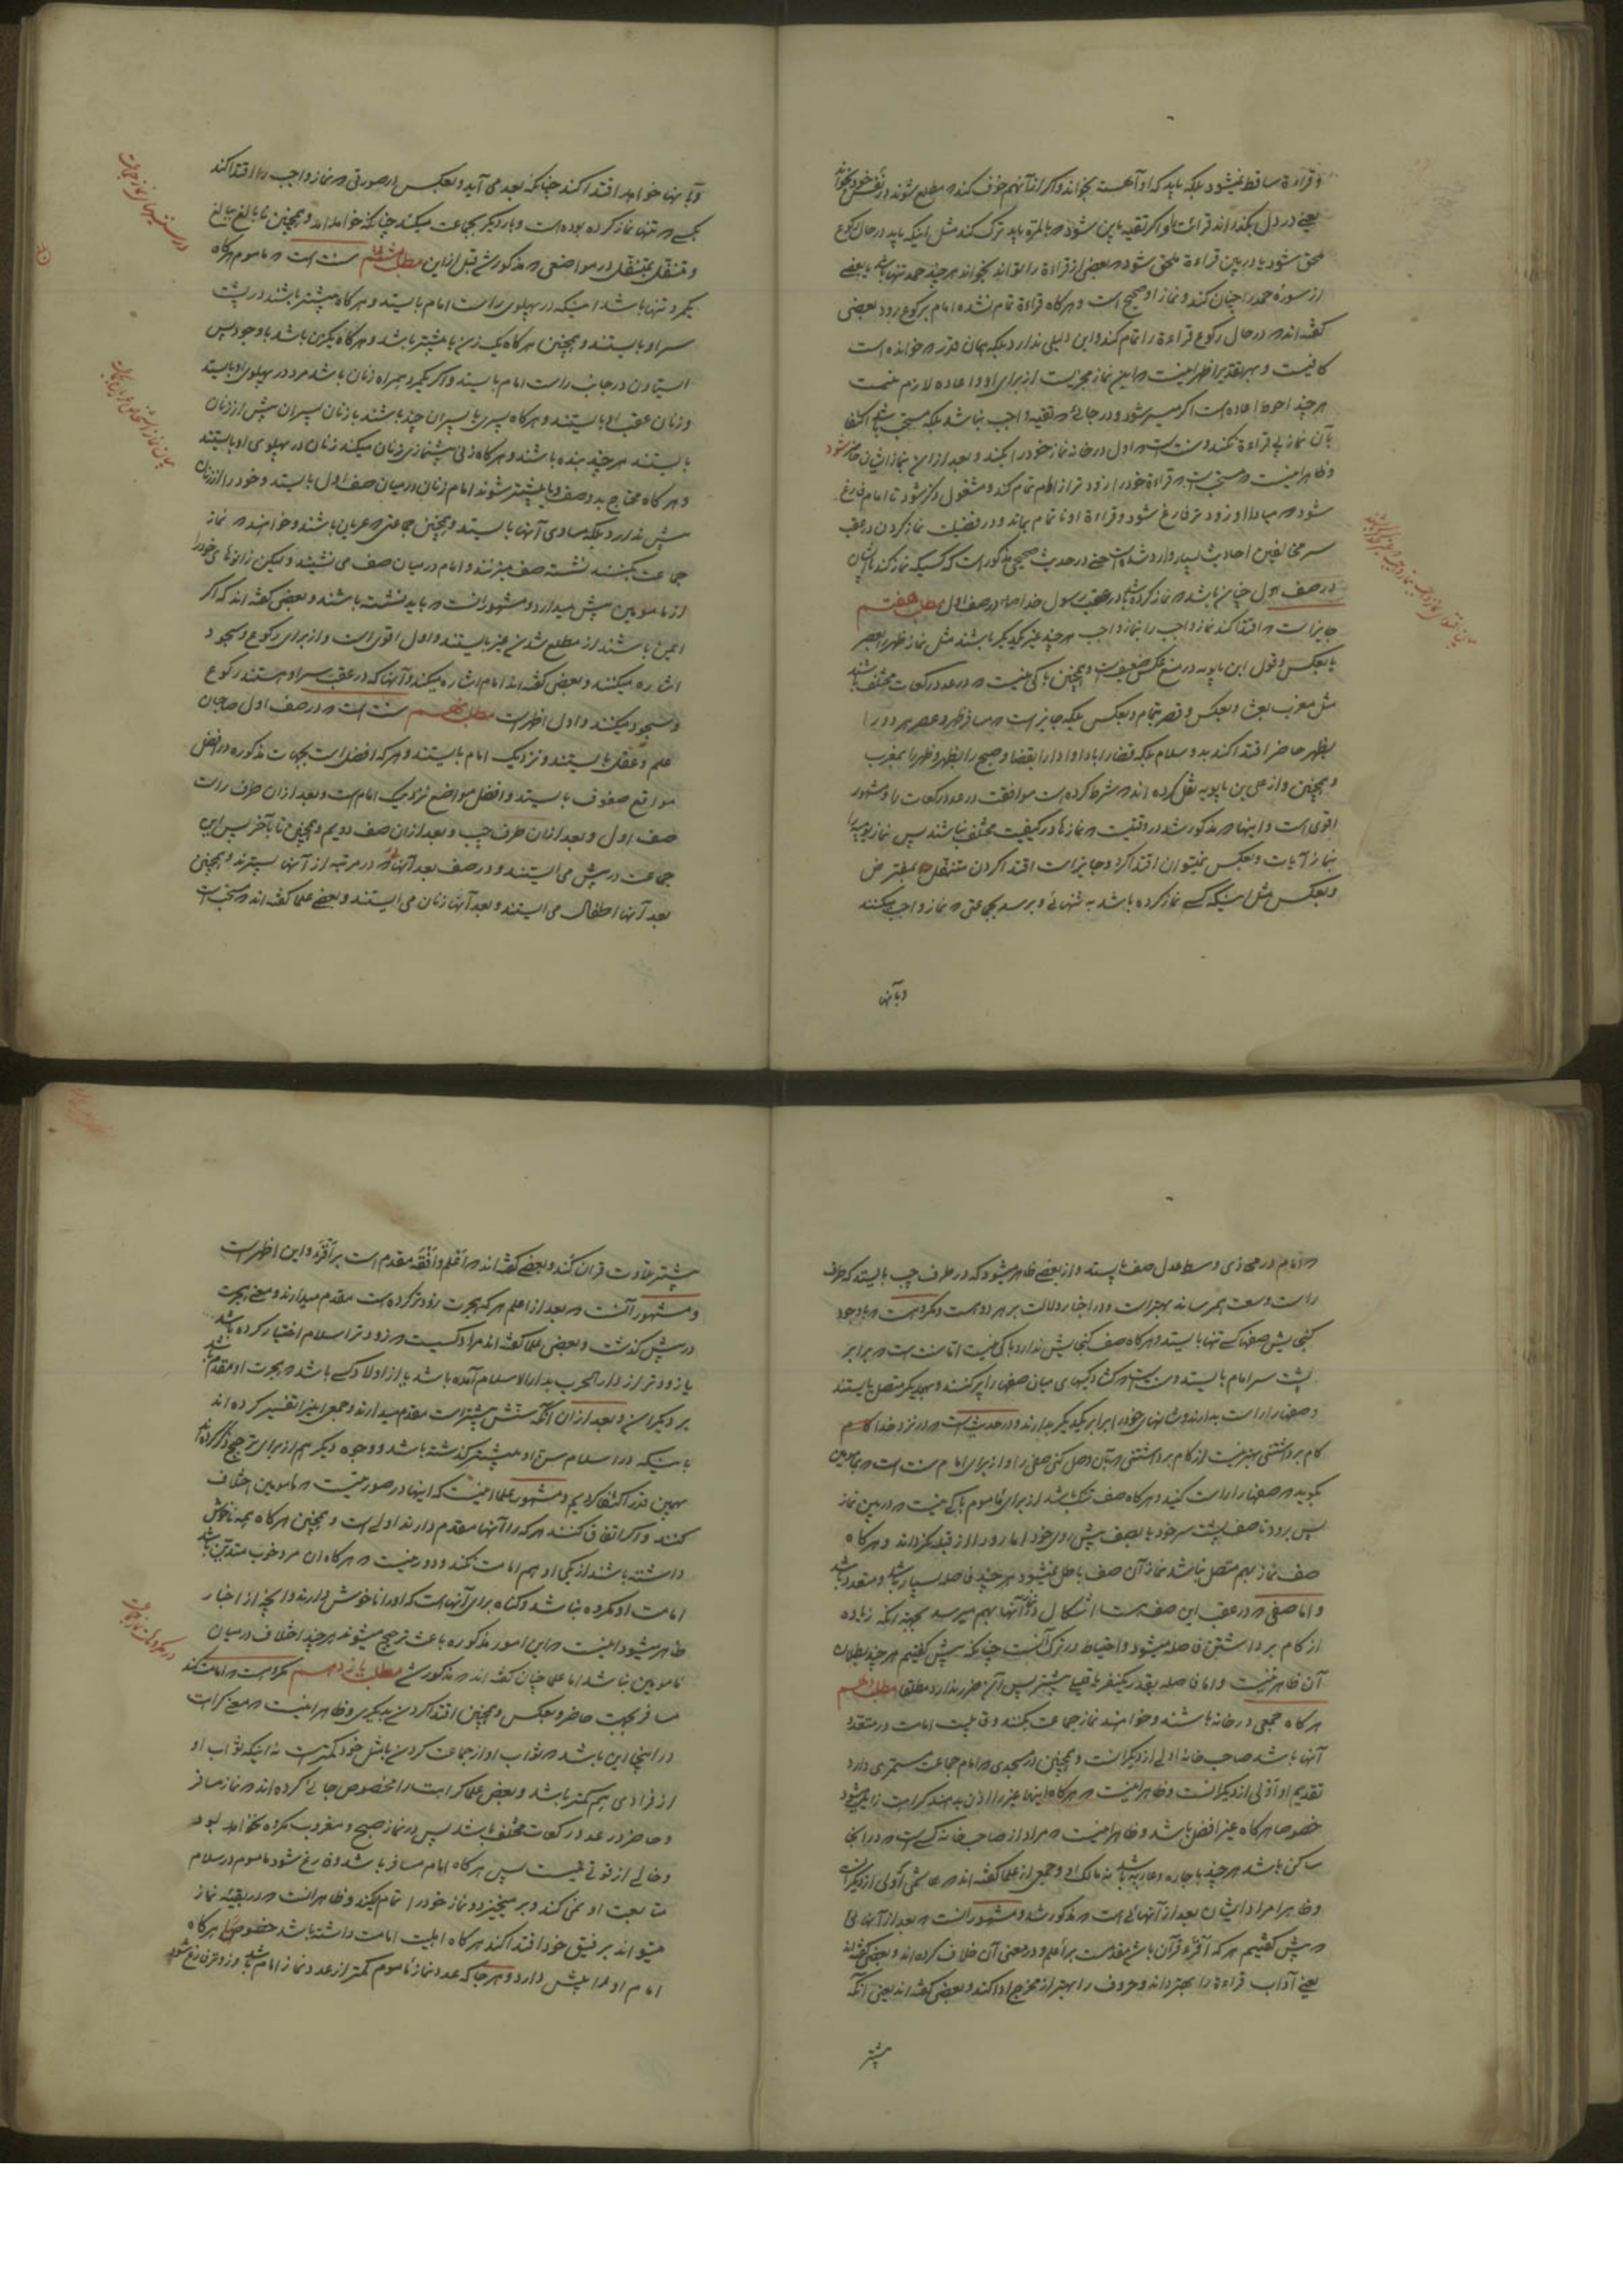 و قراءة ساقط نمیشود بلکه باید که او آهسته بخواند و اگر از آنهم خوف کند که مطلع شوند در نفس خود بخواند
یعنی در دل بگذراند قرائت را و اگر تقیه باین شود که بالمره باید ترک کند مثل اینکه باید در حال رکوع
ملحق شود یا در بین قراءة ملحق شود که بعضی از قراءة را تواند بخواند هر چند حمد تنها باشد یا بعضی
از سوره حمد را چنان کند و نماز او صحیح است و هر گاه قراءة تمام نشده امام برکوع رود بعضی
گفته‌اند که در حال رکوع قراءة را تمام کند و این دلیلی ندارد بلکه همان قدر که خوانده است
کافیست و بهر تقدیر اظهر اینست که این نماز مجزیست از برای او و اعاده لازم نیست
هر چند احوط اعاده است اگر میسر شود و در جائی که تقیه واجب نباشد بلکه مستحب باشد اکتفا
بآن نماز بی قراءة نکند و سنت است که اول در خانه نماز خود را بکند و بعد از آن بنماز ایشان حاضر شود
و ظاهر اینست که مستحب است که قراءة خود را زودتر از امام تمام کند و مشغول ذکر شود تا امام فارغ
شود که مبادا او زودتر فارغ شود و قراءة او ناتمام بماند و در فضیلت نماز کردن در عقب
سر مخالفین احادیث بسیار وارد شده است حتی در حدیث صحیح مذکور است که کسیکه نماز کند با ایشان
در صف اول چنان باشد که نماز کرده باشد در عقب رسول خدا در صف اول مطلب هفتم
جایز است که اقتدا کند نماز واجب را بنماز واجب هر چند غیر یکدیگر باشند مثل نماز ظهر را بعصر
یا بعکس و قول ابن بابویه در منع عکس ضعیف است و همچنین باکی نیست که در عدد رکعات مختلف باشند
مثل مغرب بعشا و بعکس و قصر بتمام و بعکس بلکه جایز است که مسافر ظهر و عصر هر دو را
بظهر حاضر اقتدا کند بدو سلام بلکه قضا را بادا و ادا را بقضا و صبح را بظهر و ظهر را بمغرب
و همچنین و از علی بن بابویه نقل کرده‌اند که شرط کرده است موافقت در عدد رکعات را و مشهور
اقوی است و اینها که مذکور شد در وقتیست که نمازها در کیفیت مختلف نباشند پس نماز یومیه را
بنماز آیات و بعکس نمیتوان اقتدا کرد و جایز است اقتدا کردن متنفل بمفترض
و بعکس مثل اینکه کسی نماز کرده باشد به تنهائی و برسد بجماعتی که نماز واجب میکنند
و بآنها
و بآنها خواهد اقتدا کند چنانکه بعد می آید و بعکس در صورتی که نماز واجب را اقتدا کند
بکسی که تنها نماز کرده بوده است و بار دیگر بجماعت میکند چنانکه خواهد آمد و همچنین نابالغ ببالغ
و متنفل بمتنفل در مواضعی که مذکور شد قبل از این مطلب هشتم سنت است که ماموم هر گاه
یکمرد تنها باشد اینکه در پهلوی راست امام بایستد و هر گاه بیشتر باشند در پشت
سر او بایستند و همچنین هر گاه یک زن یا بیشتر باشد و هر گاه یکزن باشد با وجود پس
ایستادن در جانب راست امام بایستد و اگر یکمرد همراه زنان باشد مرد در پهلوی او بایستد
و زنان عقب او بایستند و هر گاه پسری یا پسران چند باشند با زنان پسران پیش از زنان
بایستند هر چند بنده باشند و هر گاه زنی پیشنمازی زنان میکند زنان در پهلوی او بایستند
و هر گاه محتاج بدو صف یا بیشتر شوند امام زنان در میان صف اول بایستد و خود را از زنان
پیش ندارد بلکه مساوی آنها بایستد و همچنین جماعتی که عریان باشند و خواهند که نماز
جماعت بکنند نشسته صف میزنند و امام در میان صف می نشیند و لیکن زانوهای خود را
از مامومین پیش میدارد و مشهور آنست که باید نشسته باشند و بعضی گفته‌اند که اگر
ایمن باشند از مطلع شدن غیر بایستند و اول اقوی است و از برای رکوع و سجود
اشاره میکنند و بعضی گفته‌اند امام اشاره میکند و آنها که در عقب سر او هستند رکوع
و سجود میکنند و اول اظهر است مطلب نهم سنت است که در صف اول صاحبان
علم و عقل بایستند و نزدیک امام بایستند و هر که افضل است بجهات مذکوره در افضل
مواقع صفوف بایستد و افضل مواضع نزدیک امام است و بعد از آن طرف راست
صف اول و بعد از آن طرف چپ و بعد از آن صف دویم و همچنین تا بآخر پس این
جماعت در پیش می ایستند و در صف بعد آنها که در مرتبه از آنها پسترند و همچنین
بعد آنها اطفال می ایستند و بعد آنها زنان می ایستند و بعضی علما گفته‌اند که مستحب است
که امام در محاذی وسط اول صف بایستد و از بعضی ظاهر میشود که در طرف چپ بایستد که طرف
راست وسعت بهم رساند بهتر است و در اخبار دلالت بر هر دو هست و مکروهست که با وجود
گنجایش صفها کسی تنها بایستد و هر گاه صف گنجایش ندارد باکی نیست اما سنت است که برابر
پشت سر امام بایستد و سنت است که گشادگیهای میان صفها را پر کنند و بهمدیگر متصل بایستند
و صفها را راست بدارند و شانهای خود را برابر یکدیگر بدارند و در حدیث است که در نزد خدا کام
کام برداشتنی بهتر نیست از کام برداشتنی که بآن وصل کنی صفی را و از برای امام سنت است که بمامومین
بگوید که صفها را راست کنید و هر گاه صف تنک باشد از برای ماموم باکی نیست که در بین نماز
پس برود تا صف پشت سر خود یا بصف پیش روی خود اما رو را از قبله نگرداند و هر گاه
صف نماز بهم متصل نباشد نماز آن صف باطل نمیشود هر چند فاصله بسیار باشد و متعدد باشد
و اما صفی که در عقب این صف هست اشکال در نماز آنها بهم میرسد بجهة آنکه زیاده
از کام برداشتن فاصله میشود و احتیاط در ترک آنست چنانکه پیش گفتیم هر چند بطلان
آن ظاهر نیست و اما فاصله بقدر یکنفر یا قلیلی بیشتر پس آن ضرر ندارد مطلقا مطلب دهم
هر گاه جمعی در خانه باشند و خواهند نماز جماعت بکنند و قابلیت امامت در متعدد
آنها باشد صاحب خانه اولی از دیگرانست و همچنین در مسجدی که امام جماعت مستمری دارد
تقدیم او اولی از دیگرانست و ظاهر اینست که هر گاه اینها غیر را اذن بدهند کراهت زایل میشود
خصوصا هر گاه غیر افضل باشد و ظاهر اینست که مراد از صاحب خانه کسی است که در انجا
ساکن باشد هر چند باجاره و عاریه باشد نه مالک او و جمعی از علما گفته‌اند که هاشمی اولی از دیگرانست
و ظاهرا مراد ایشان بعد از آنهائی است که مذکور شد و مشهور آنست که بعد از آنها
که پیش گفتیم هر که اقرء قرآن باشد مقدمست بر اعلم و در معنی آن خلاف کرده‌اند و بعضی گفته‌اند
یعنی آداب قراءة را بهتر داند و حروف را بهتر از مخرج ادا کند و بعضی گفته‌اند یعنی آنکه
بیشتر
بیشتر تلاوت قران کند و بعضی گفته‌اند که اعلم و افقه مقدم است بر اقرء و این اظهر است
و مشهور آنست که بعد از اعلم هر که هجرت زودتر کرده است مقدم میدارند و معنی هجرت
در پیش گذشت و بعضی علما گفته‌اند مراد کسیست که زودتر اسلام اختیار کرده باشد
یا زودتر از دار الحرب بدار الاسلام آمده باشد یا از اولاد کسی باشد که هجرت او مقدم باشد
بر دیگران و بعد از آن آنکه سنش بیشتر است مقدم میدارند و جمعی اینرا تفسیر کرده‌اند
باینکه در اسلام سن او بیشتر گذشته باشد و وجوه دیگر هم از برای ترجیح ذکر کرده‌اند
بهمین قدر اکتفا کردیم و مشهور علما اینست که اینها در صورتیست که مامومین اختلاف
کنند و اگر اتفاق کنند هر که را آنها مقدم دارند اولی است و همچنین هر گاه همه ناخوش
داشته باشند از یکی او هم امامت نکند و دور نیست که هر گاه ان مرد خوب متدین باشد
امامت او مکروه نباشد و گناه برای آنهاست که او را ناخوش دارند و آنچه از اخبار
ظاهر میشود اینست که این امور مذکوره باعث ترجیح میشوند هر چند اختلاف در میان
مامومین نباشد اما علما چنان گفته‌اند که مذکور شد مطلب یازدهم مکروهست که امامت کند
مسافر بجهت حاضر و بعکس و همچنین اقتدا کردن بدیگری و ظاهر اینست که معنی کراهت
در اینجا این باشد که ثواب او از جماعت کردن با مثل خود کمتر است نه اینکه ثواب او
از فرادی هم کمتر باشد و بعضی علما کراهت را مخصوص جائی کرده‌اند که نماز مسافر
و حاضر در عدد رکعات مختلف باشد پس در نماز صبح و مغرب مکروه نخواهد بود
و خالی از قوتی نیست پس هر گاه امام مسافر باشد و فارغ شود ماموم در سلام
متابعت او نمی کند و بر میخیزد و نماز خود را تمام میکند و ظاهر آنست که در بقیه نماز
میتواند برفیق خود اقتدا کند هر گاه اهلیت امامت داشته باشد خصوصا هر گاه
امام او را پیش دارد و هر جا که عدد نماز ماموم کمتر از عدد نماز امام باشد و زودتر فارغ شود